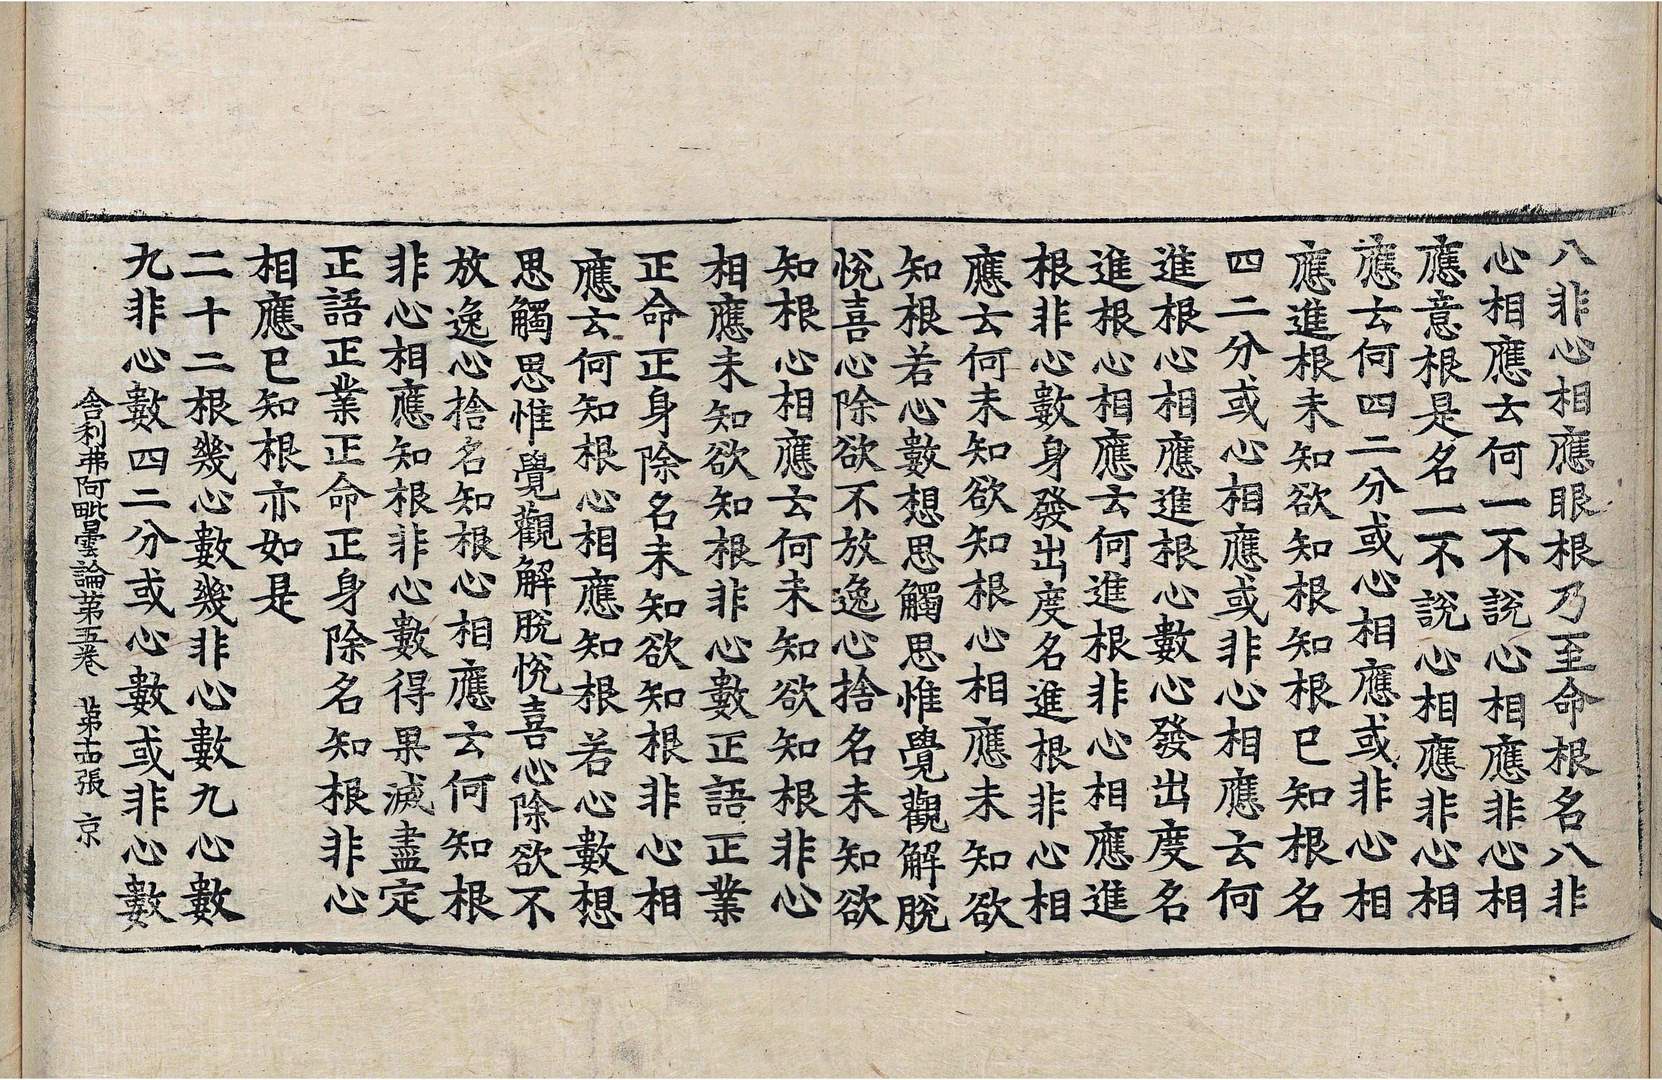 八非心相應眼根乃至命根名八非
心相應云何一不說心相應非心相
應意根是名一不說心相應非心相
應云何四二分或心相應或非心相
應進根未知欲知根知根已知根名
四二分或心相應或非心相應云何
進根心相應進根心數心發出度名
進根心相應云何進根非心相應進
根非心數身發出度名進根非心相
應云何未知欲知根心相應未知欲
知根若心數想思觸思惟覺觀解脫
悅喜心除欲不放逸心捨名未知欲
知根心相應云何未知欲知根非心
相應未知欲知根非心數正語正業
正命正身除名未知欲知根非心相
應云何知根心相應知根若心數想
思觸思惟覺觀解脫悅喜心除欲不
放逸心捨名知根心相應云何知根
非心相應知根非心數得果滅盡定
正語正業正命正身除名知根非心
相應已知根亦如是
二十二根幾心數幾非心數九心數
九非心數四二分或心數或非心數
舍利弗阿毗曇論第五卷 第十四張 京